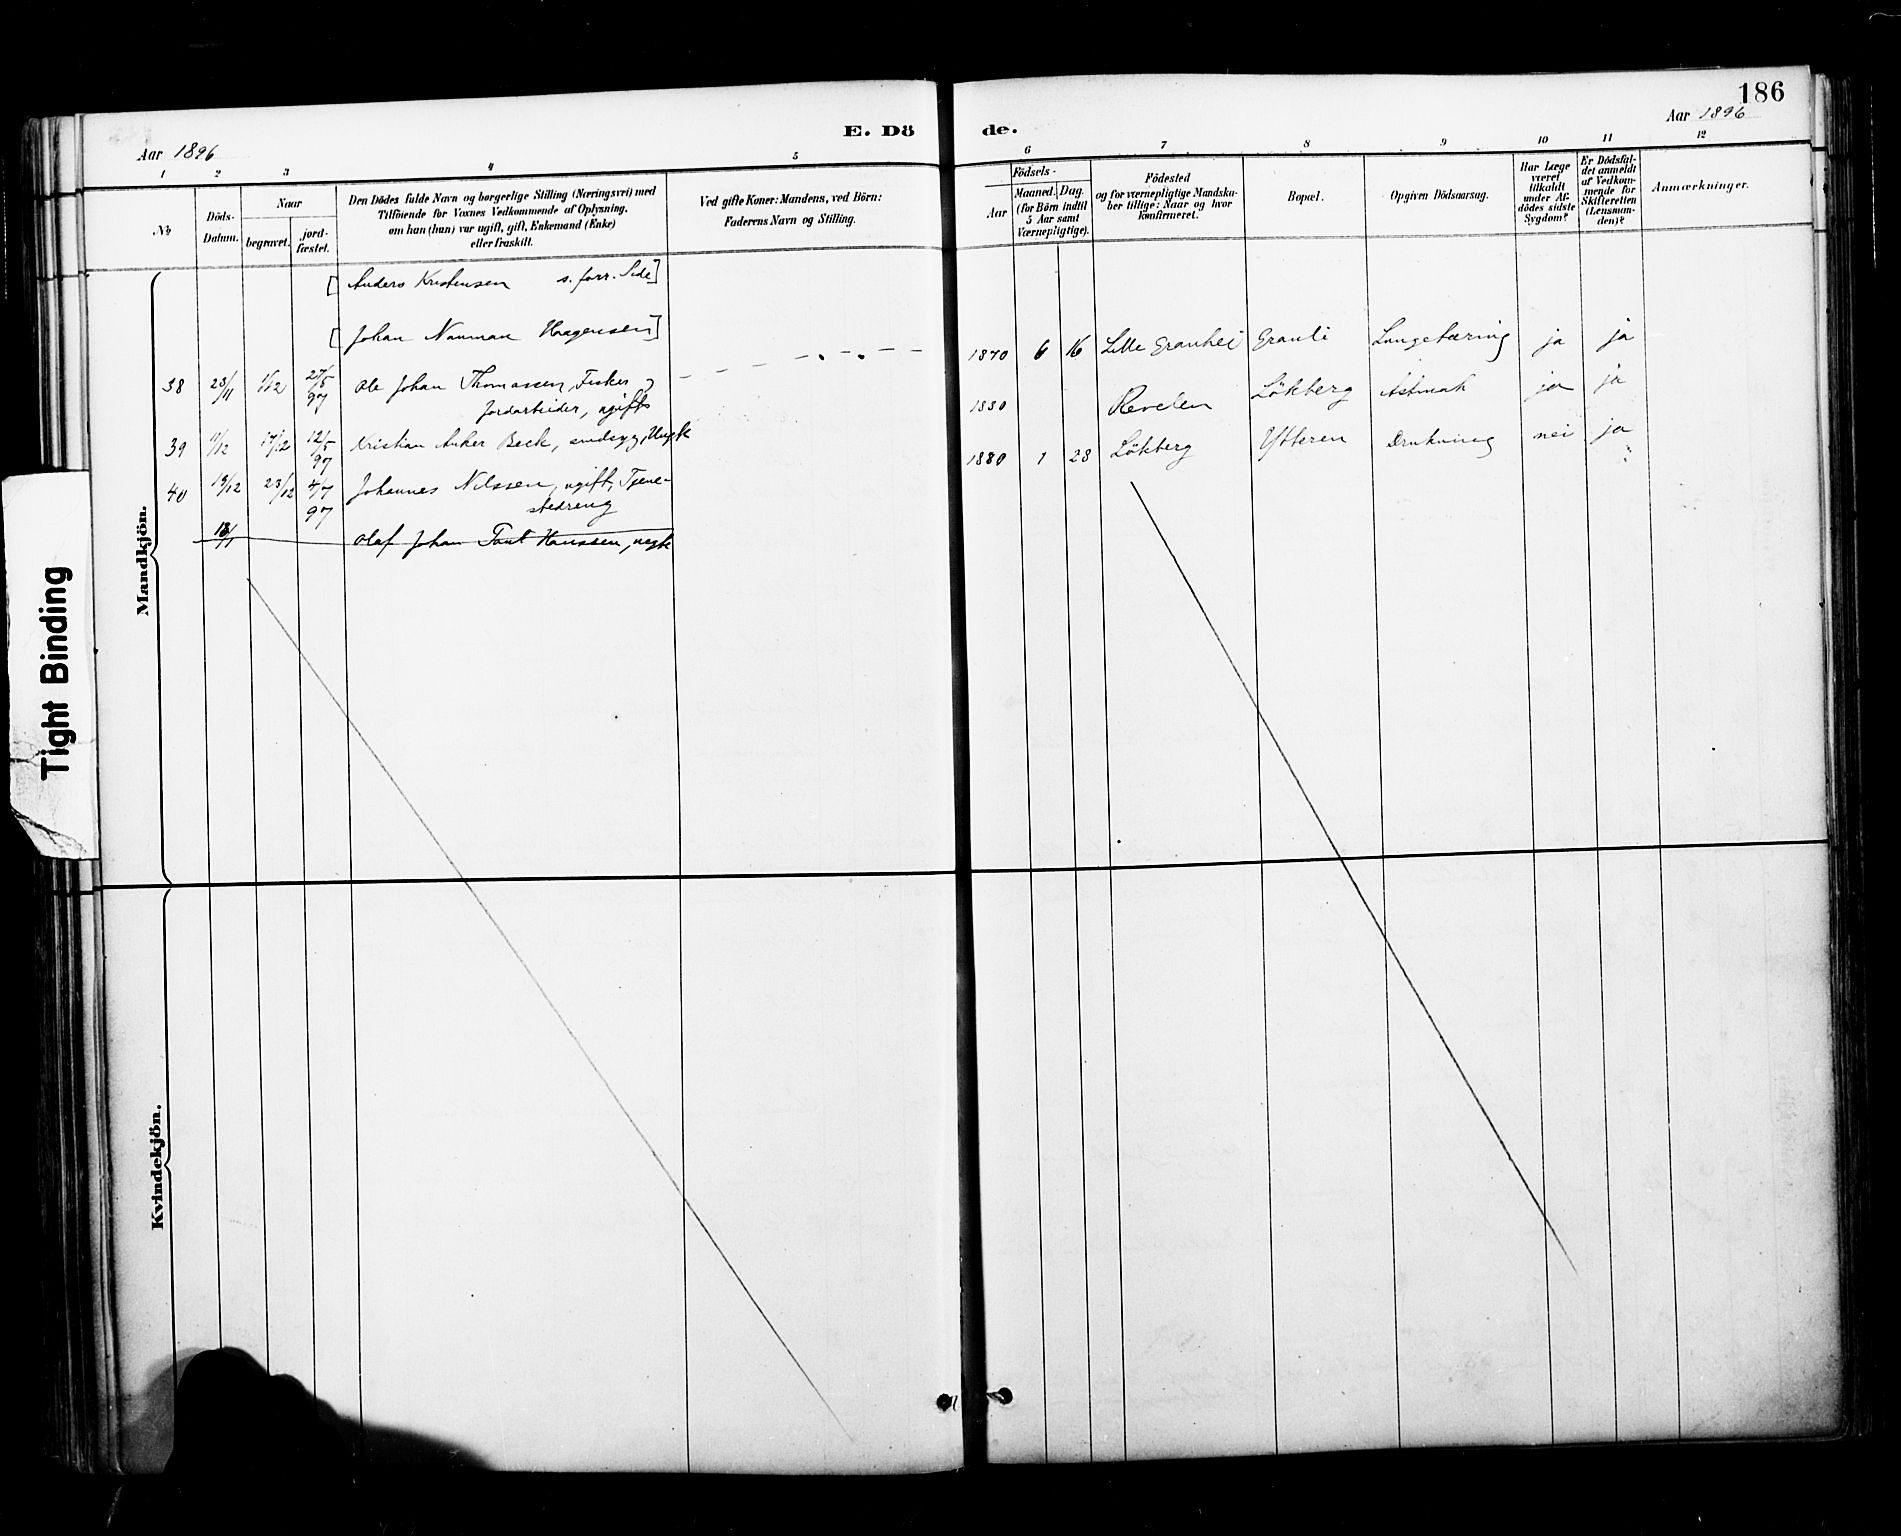 186
E. Dö de.
Aar 1896
Aar 1896
1 2 3 4 5 6 7 8 9 10 11 12
№
Döds-
Datum.
Naar
begravet.
jord-
fæstet.
Den Dödes fulde Navn og borgerlige Stilling (Næringsvei) med
Tilföiende for Voxnes Vedkommende af Oplysning,
om han (hun) var ugift, gift, Enkemand (Enke)
eller fraskilt.
Ved gifte Koner: Mandens, ved Börn:
Faderens Navn og Stilling.
Födsels-
Aar
Maaned. Dag.
(for Börn indtil
5 Aar samt
Værnepligtige).
Födested
og for værnepligtige Mandska-
ber tillige: Naar og hvor
konfirmeret.
Bopæl.
Opgiven Dödsaarsag.
Har Læge
været
tilkaldt
under Af-
dödes sidste
Sygdom?
Er Dödsfal-
det anmeldt
af Vedkom-
mende for
Skifteretten
(Lensman-
den)?
Anmærkninger.
Mandkjön.
[Anders Kristensen s. forr. Side]
[Johan Nauman Haagensen]
38 23/11 1/12 27/5 97 Ole Johan Thomassen, Fisker og
Jordarbeider, ugift
1870 6 16 Lille Granhei Granli Lungetæring ja ja
39 11/12 17/12 12/5 97 Kristian Anker Beck, sindsyg, Ungk
1830 Revelen Lökberg Astmah ja ja
40 19/12 23/12 4/7 97 Johannes Nilssen, ugift, Tjene-
stedreng
1880 1 28 Lökberg Ytteren Drukning nei ja
18/1 Olaf Johan Hanssen, ungk
Kvindekjön.
Tight Binding